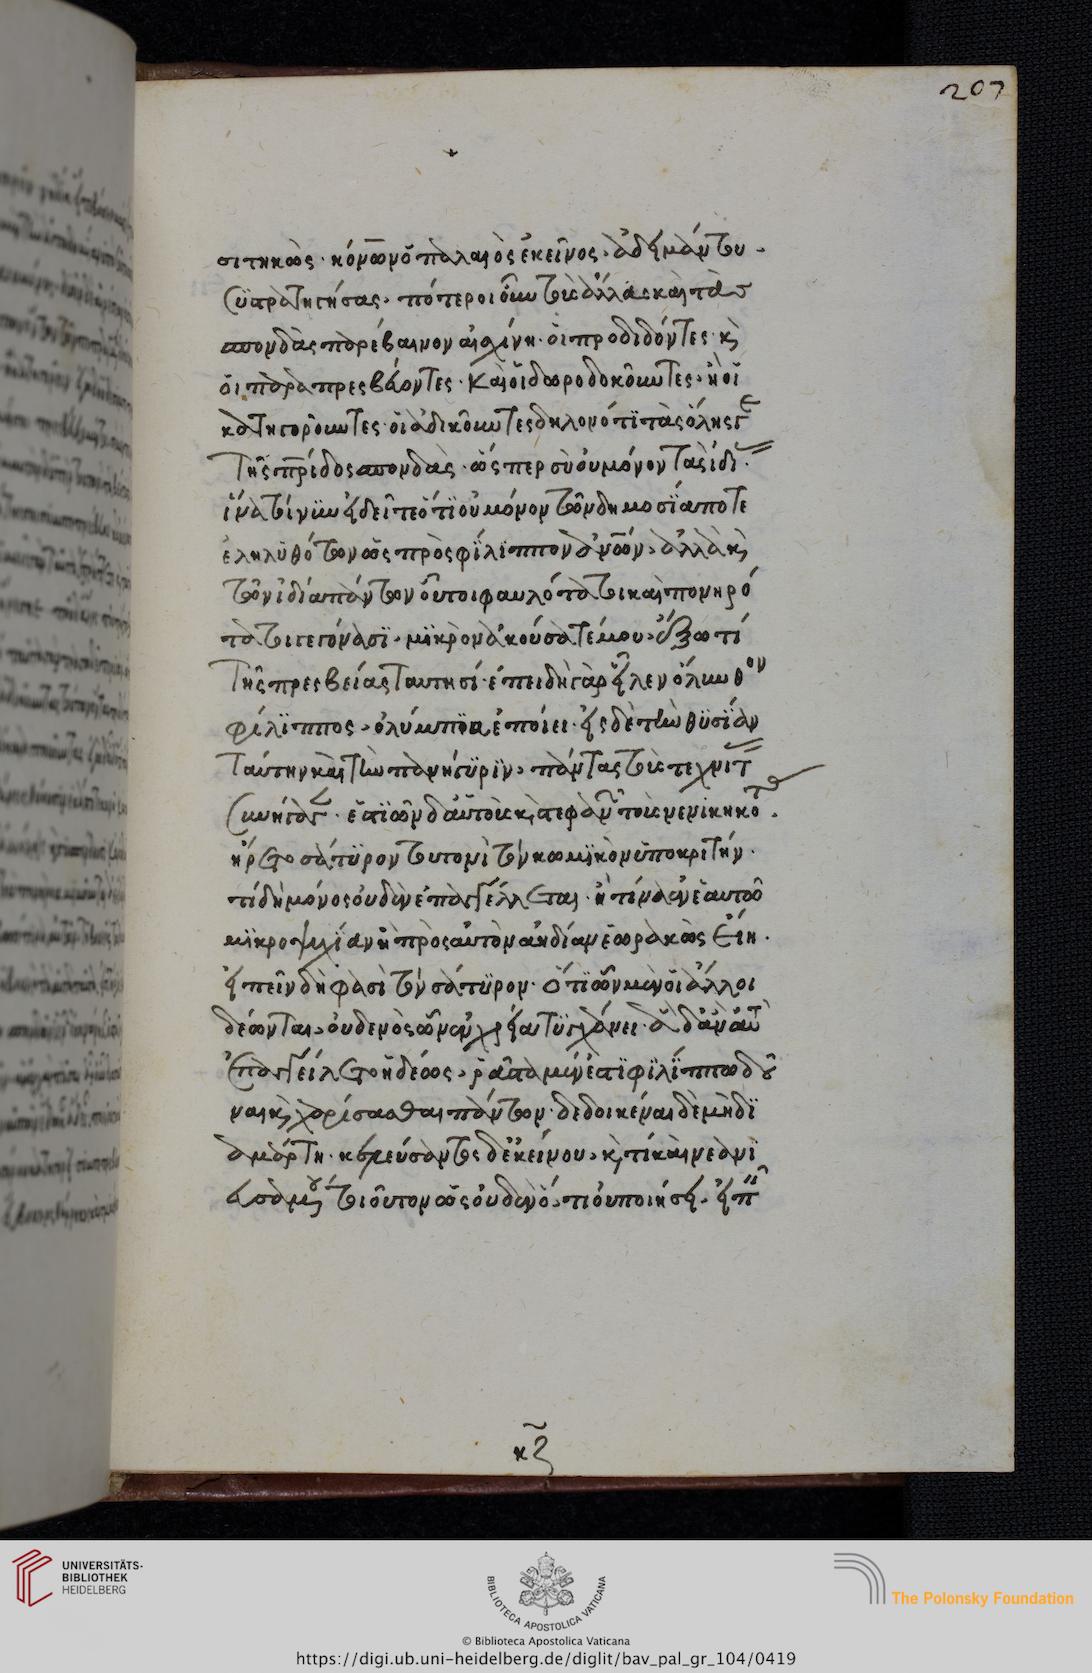 207
σιτηκὼς· κόνωνος ὁ παλαιὸς ἐκεῖνος, ἀδειμάντου
συστρατηγήσας, πότεροι οὖν τοὺς ἅλας καὶ τὰς
σπονδὰς παρέβαινον αἰσχίνη· οἱ προδιδόντες· καὶ
οἱ παραπρεσβεύοντες· καὶ οἱ δωροδοκοῦντες· ἢ οἱ
κατηγοροῦντες· οἱ ἀδικοῦντες δηλονότι τὰς ὅλης γε
τῆς πατρίδος σπονδὰς· ὥσπερ σὺ οὐ μόνον τὰς ἰδί·
ἵνα τοίνυν εἰδεῖτε ὅτι οὐ μόνον τῶν δημοσία ποτε
ἐληλυθότων ὡς πρὸς φίλιππον ἀνθρώπων, ἀλλὰ καὶ
τῶν ἰδία πάντων οὗτοι φαυλότατοι καὶ πονηρό
τατοι γεγόνασι, μικρὸν ἀκούσατέ μου, ἔξω τι
τῆς πρεσβείας ταυτησί· ἐπειδὴ γὰρ εἷλεν ὄλυνθον
φίλιππος, ὀλύμπια ἐποίει· εἰς δὲ τὴν θυσίαν
ταύτην καὶ τὴν πανήγυριν, πάντας τοὺς τεχνίτ
συνήγαγ· ἑστιῶν δ' αὐτοὺς καὶ στεφανῶν τοὺς νενικηκότας.
ἤρετο σάτυρον τουτονὶ τὸν κωμικὸν ὑποκριτήν·
τί δὴ μόνος οὐδὲν ἐπαγγέλλεται· ἢ τίνα ἐν ἑαυτοῦ
μικροψυχίαν ἢ πρὸς αὐτὸν ἀηδίαν ἑωρακὼς εἴη·
εἰπεῖν δή φασι τὸν σάτυρον· ὅτι ὧν μὲν οἱ ἄλλοι
δέονται, οὐδενὸς ὢν ἐν χρείᾳ τυγχάνει· ἃ δ' ἂν αὐτὸς
ἐπαγγείλετο ἡδέως, ῥᾷστα μέν ἐστι φιλίππῳ δοῦ
ναι καὶ χαρίσασθαι πάντων· δεδοικέναι δὲ μὴ δι
αμάρτη· κελεύσαντος δ' ἐκείνου, καὶ τι καὶ νεανι
ευσαμένου τοιοῦτον ὡς οὐδὲν ὅ,τι οὐ ποιήσει, εἰπεῖν
κζ
UNIVERSITÄTS-
BIBLIOTHEK
HEIDELBERG
BIBLIOTECA APOSTOLICA VATICANA
The Polonsky Foundation
© Biblioteca Apostolica Vaticana
https://digi.ub.uni-heidelberg.de/diglit/bav_pal_gr_104/0419